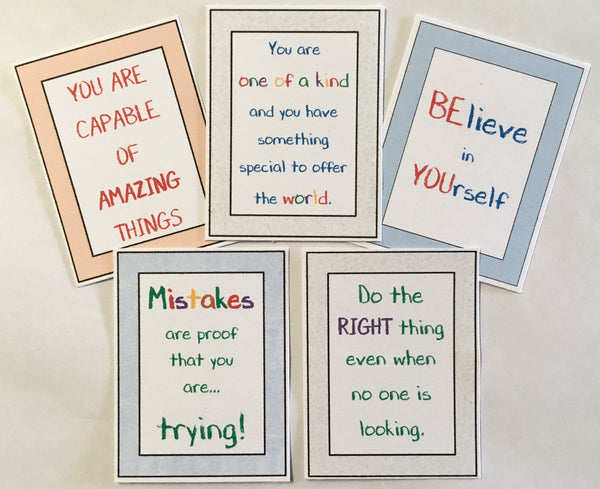 YOU ARE
CAPABLE
OF
AMAZING
THINGS
You are
one of a kind
and you have
something
special to offer
the world.
BElieve
in
YOUrself
Mistakes
are proof
that you
are...
trying!
Do the
RIGHT thing
even when
no one is
looking.